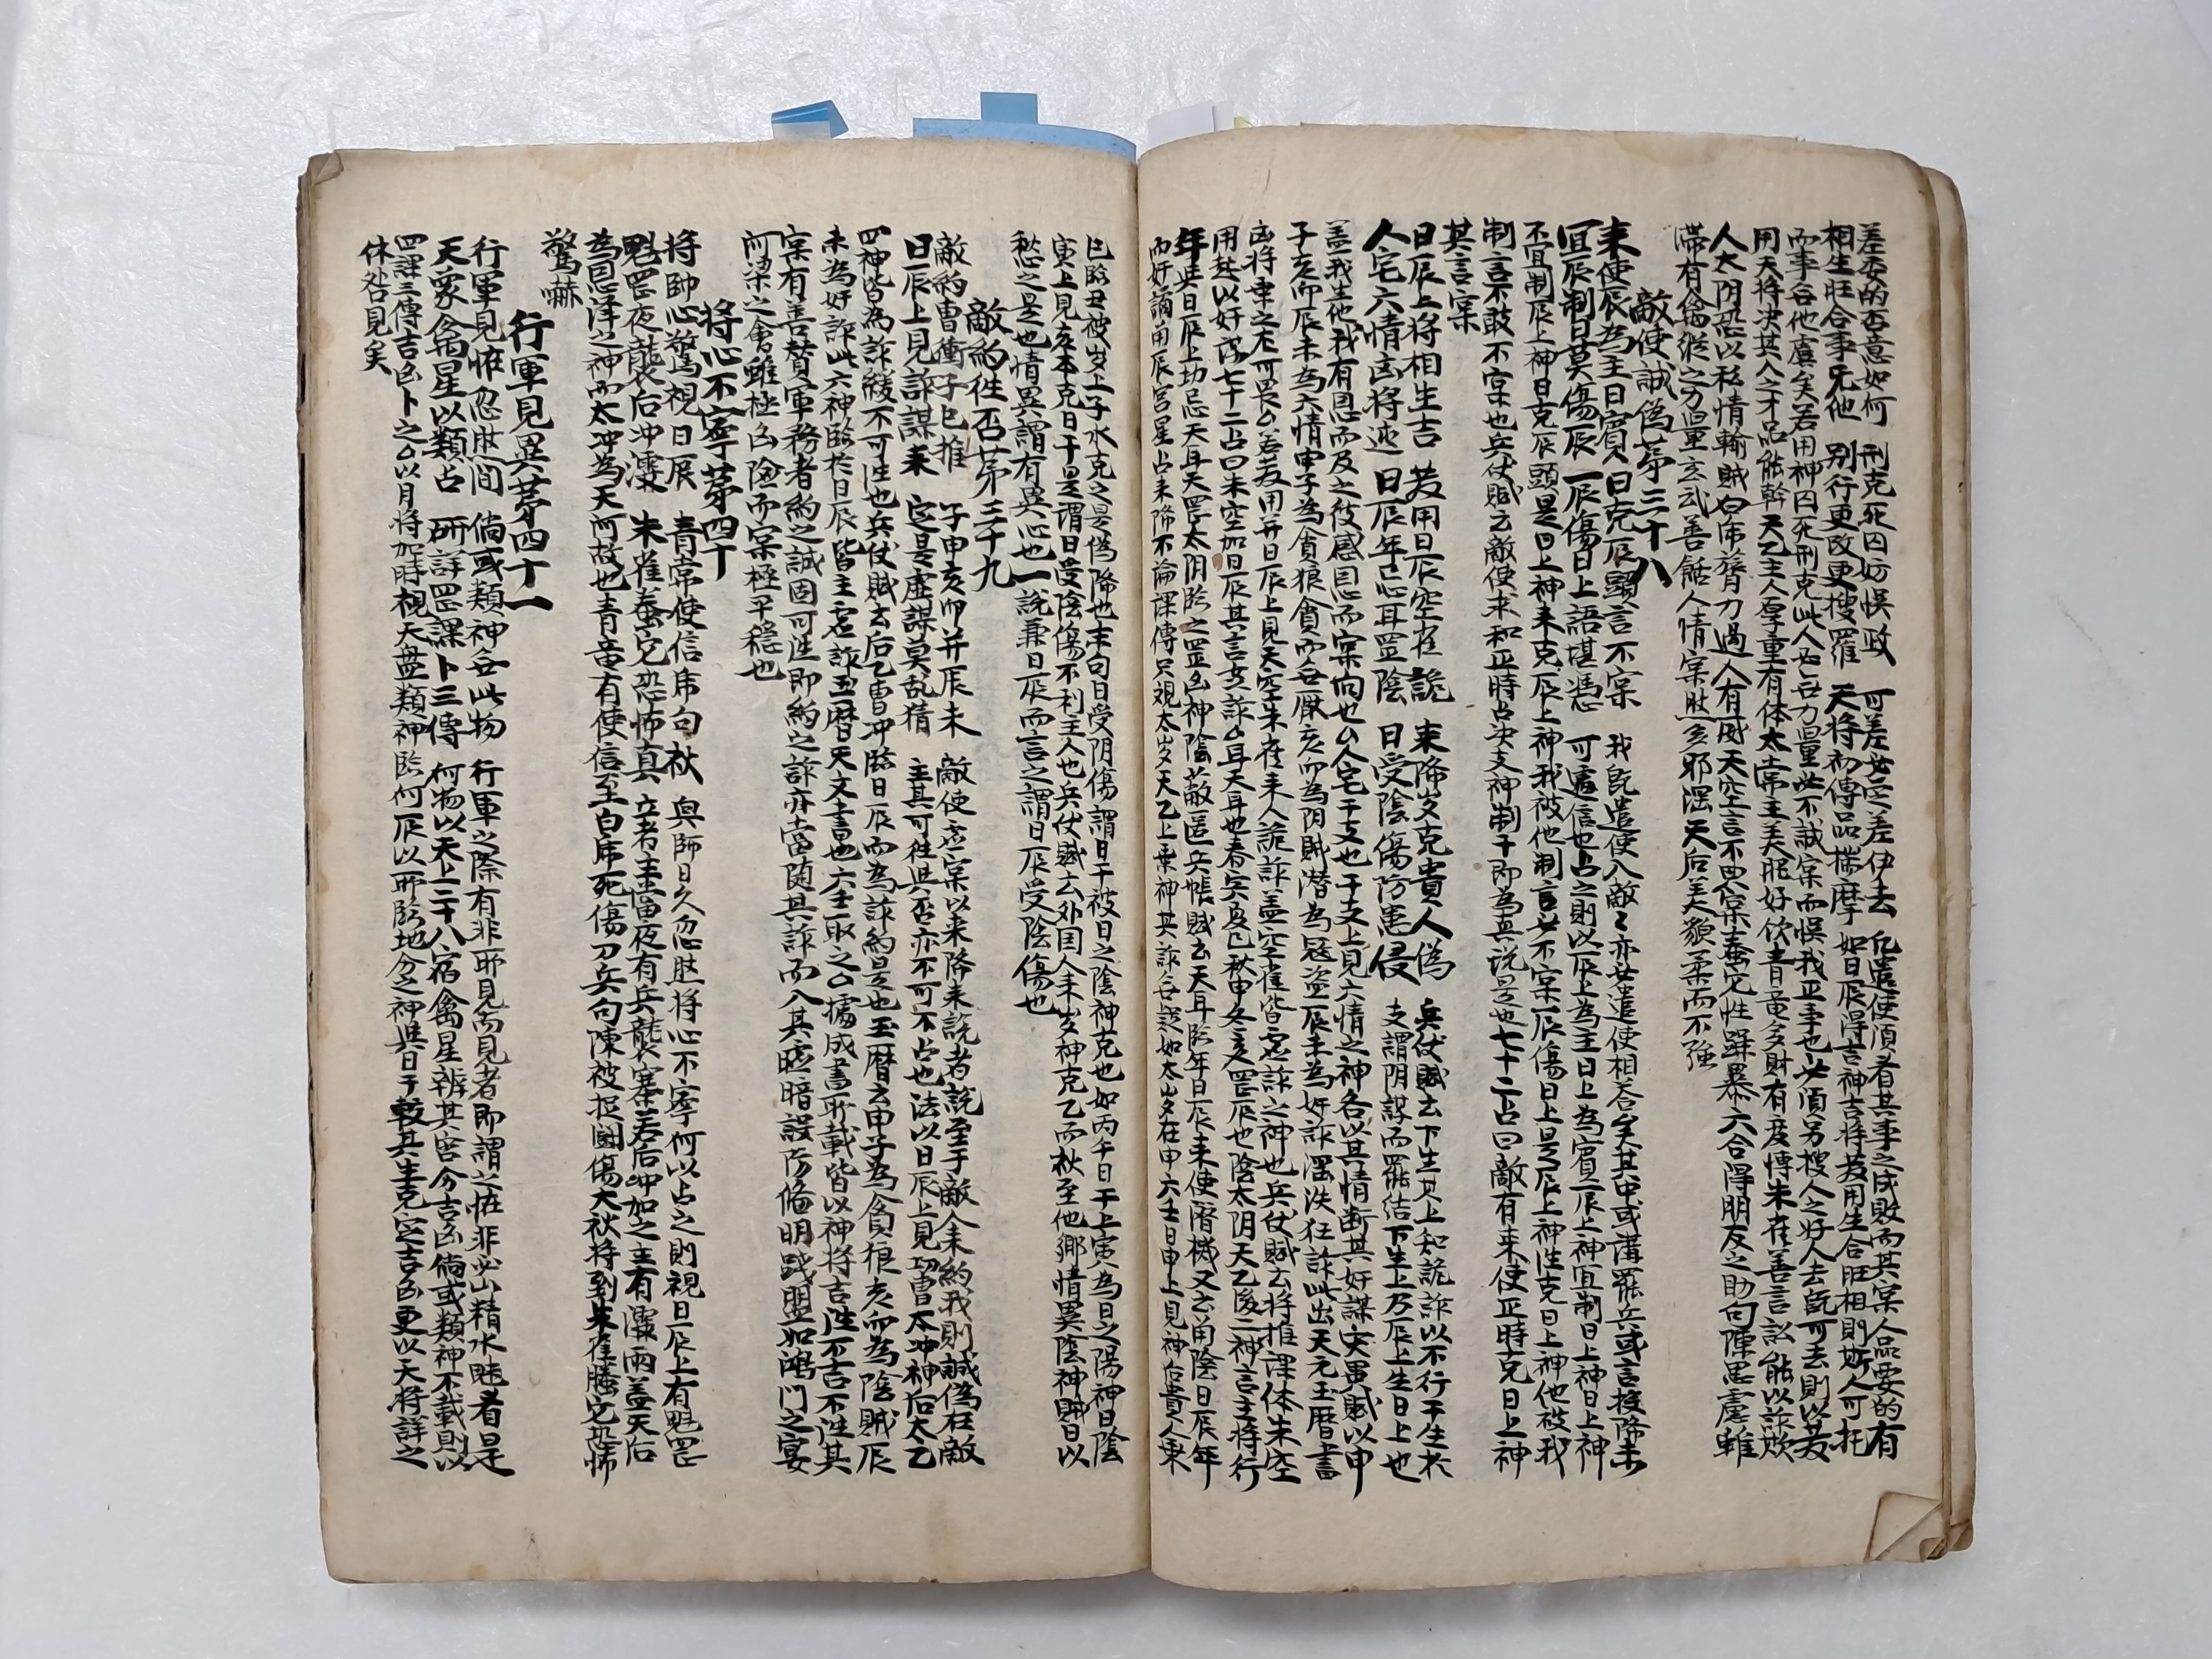 差委的否意如何　刑克死囚妨悞政　可差安定差伊去　凡遣使須看其事之成敗而其寀人品要的有
相生旺合事无他　別行更改更搜羅　天將初傳品揣摩　如日辰得吉神吉將苃用生合旺相則斯人可托
而事各他虞矣若用神囚死刑克此人必每力量坐不誠寀而悞我正事也必須另搜人之好人去旣可去則以苃
用天将决其人之才品能幹天乙主人厚重有体太常主美服好飲青竜多財有及博朱雀善言訟能以詐欺
人太阴恐以私情輸賊白虎膂力過人有威天空言不思寀螣它性躁暴六合得朋友之助勾陳思慮雖
滯有禽縱之力量玄武善餂人情寀肰多邪淫天后美貌柔而不強
敵使誠偽苐三十八
来使辰為主日賓　日克辰顕言不寀　我旣遣使入敵〻亦必遣使相荅矣其中或溝罷兵或言投降未
宜辰制日莫傷辰　辰傷日上語堪憑　可處信也占之則以辰上為主日上為賓辰上神宜制日上神日上神
不宜制辰上神日克辰頭是日上神来克辰上神我被他制言必不寀辰傷日上是辰上神往克日上神他被我
制言不敢不寀也兵仗賦云敵使求和正時占决支神制干即為真說是也七十二占曰敵有来使正時克日上神
其言寀
日辰上将相生吉　苃用日辰空在詭　来降岁克貴人偽　兵仗賦云下生其上知詭詐以不行干生於
人宅六情凶将迍　日辰年忌心耳罡陰　日受陰傷防患侵　支謂阴謀而罷結下生上乃辰上生日上也
盖我生他我有恩而及之彼感恩而寀向也人宅干支也干支上見六情之神各以其情断其奸謀实異賦以申
子亥而辰未為六情申子為貪狼貪而每厭亥卯為阴賊潜為冦盗辰未為奸詐淫泆狂詐此出天元玉曆書
凶将乗之尤可畏苃用并日辰上見天空朱雀来人詭詐盖空雀皆虚詐之神也兵仗賦云将推課体朱空
用起以奸謀七十二占曰朱空加日辰其言必詐耳天耳也春戌夏巳秋申冬亥罡辰也陰太阴天乙後二神言主将行
年與日辰上切忌天耳天罡太阴臨之罡凶神陰蔽匿兵帳賦云天耳臨年日辰来使潛機又云角陰日辰年
而奸謫角辰宫星占来降不論課傳只視太岁天乙上乗神其詐各起如太岁在申六壬日申上見神后貴人乗
巳臨丑被岁上子水克之是偽降也末句日受阴傷謂日干被日之陰神克也如丙午日干上寅為日之陽神日陰
寅上見亥本克日干是謂日受陰傷不利主人也兵仗賦云外国人来岁神克乙而秋至他鄉情異陰神賊日以
愁之是也情異謂有異心也一說兼日辰而言之謂日辰受陰傷也
敵約徃否苐三十九
敵約曹衝子巳推　子申亥卯并辰未　敵使虚寀以来降来說者說至于敵人来約我則誠偽在敵
日辰上見詐謀来　定是虚謀莫乱猜　主其可徃與否亦不可不占也法以日辰上見功曹太冲神后太乙
四神皆為詐綾不可徃也兵仗賦云后乙曹冲臨日辰而為詐約是也玉曆云申子為貪狼亥卯為陰賊辰
未為奸詐此六神臨於日辰皆主虚詐玉曆天文書也六壬取之據成書所載皆以神将吉徃不吉不徃其
寀有善賛軍務者約之誠固可徃即約之詐亦當随其詐而入其虚暗設防俻明踐盟如鴻门之宴
河梁之會雖極凶險而寀極平穩也
将心不寧苐四十
将帥心驚視日辰　青常使信虎勾秋　與師日久忽肰将心不寧何以占之則視日辰上有魁罡
魁罡夜襲后冲澤　朱雀螣它恐怖真　立者主當夜有兵襲寨若后冲加之主有澤雨盖天后
為恩澤之神而太冲為天河故也青竜有使信至白虎死傷刀兵勾陳被捉鬪傷大秋将到朱雀螣它恐怖
驚嚇
行軍見異苐四十一
行軍見怪忽肰间　倘或類神每此物　行軍之際有非所見而見者即謂之怪非必山精水魅者是
天衆禽星以類占　研詳罡課卜三傳　何物以天上二十八宿禽星辨其宫分吉凶倘或類神不載則以
四課三傳吉凶卜之以月将加時視天盘類神臨何辰以所臨地分之神與日干較其生克定吉凶更以天将詳之
休咎見矣